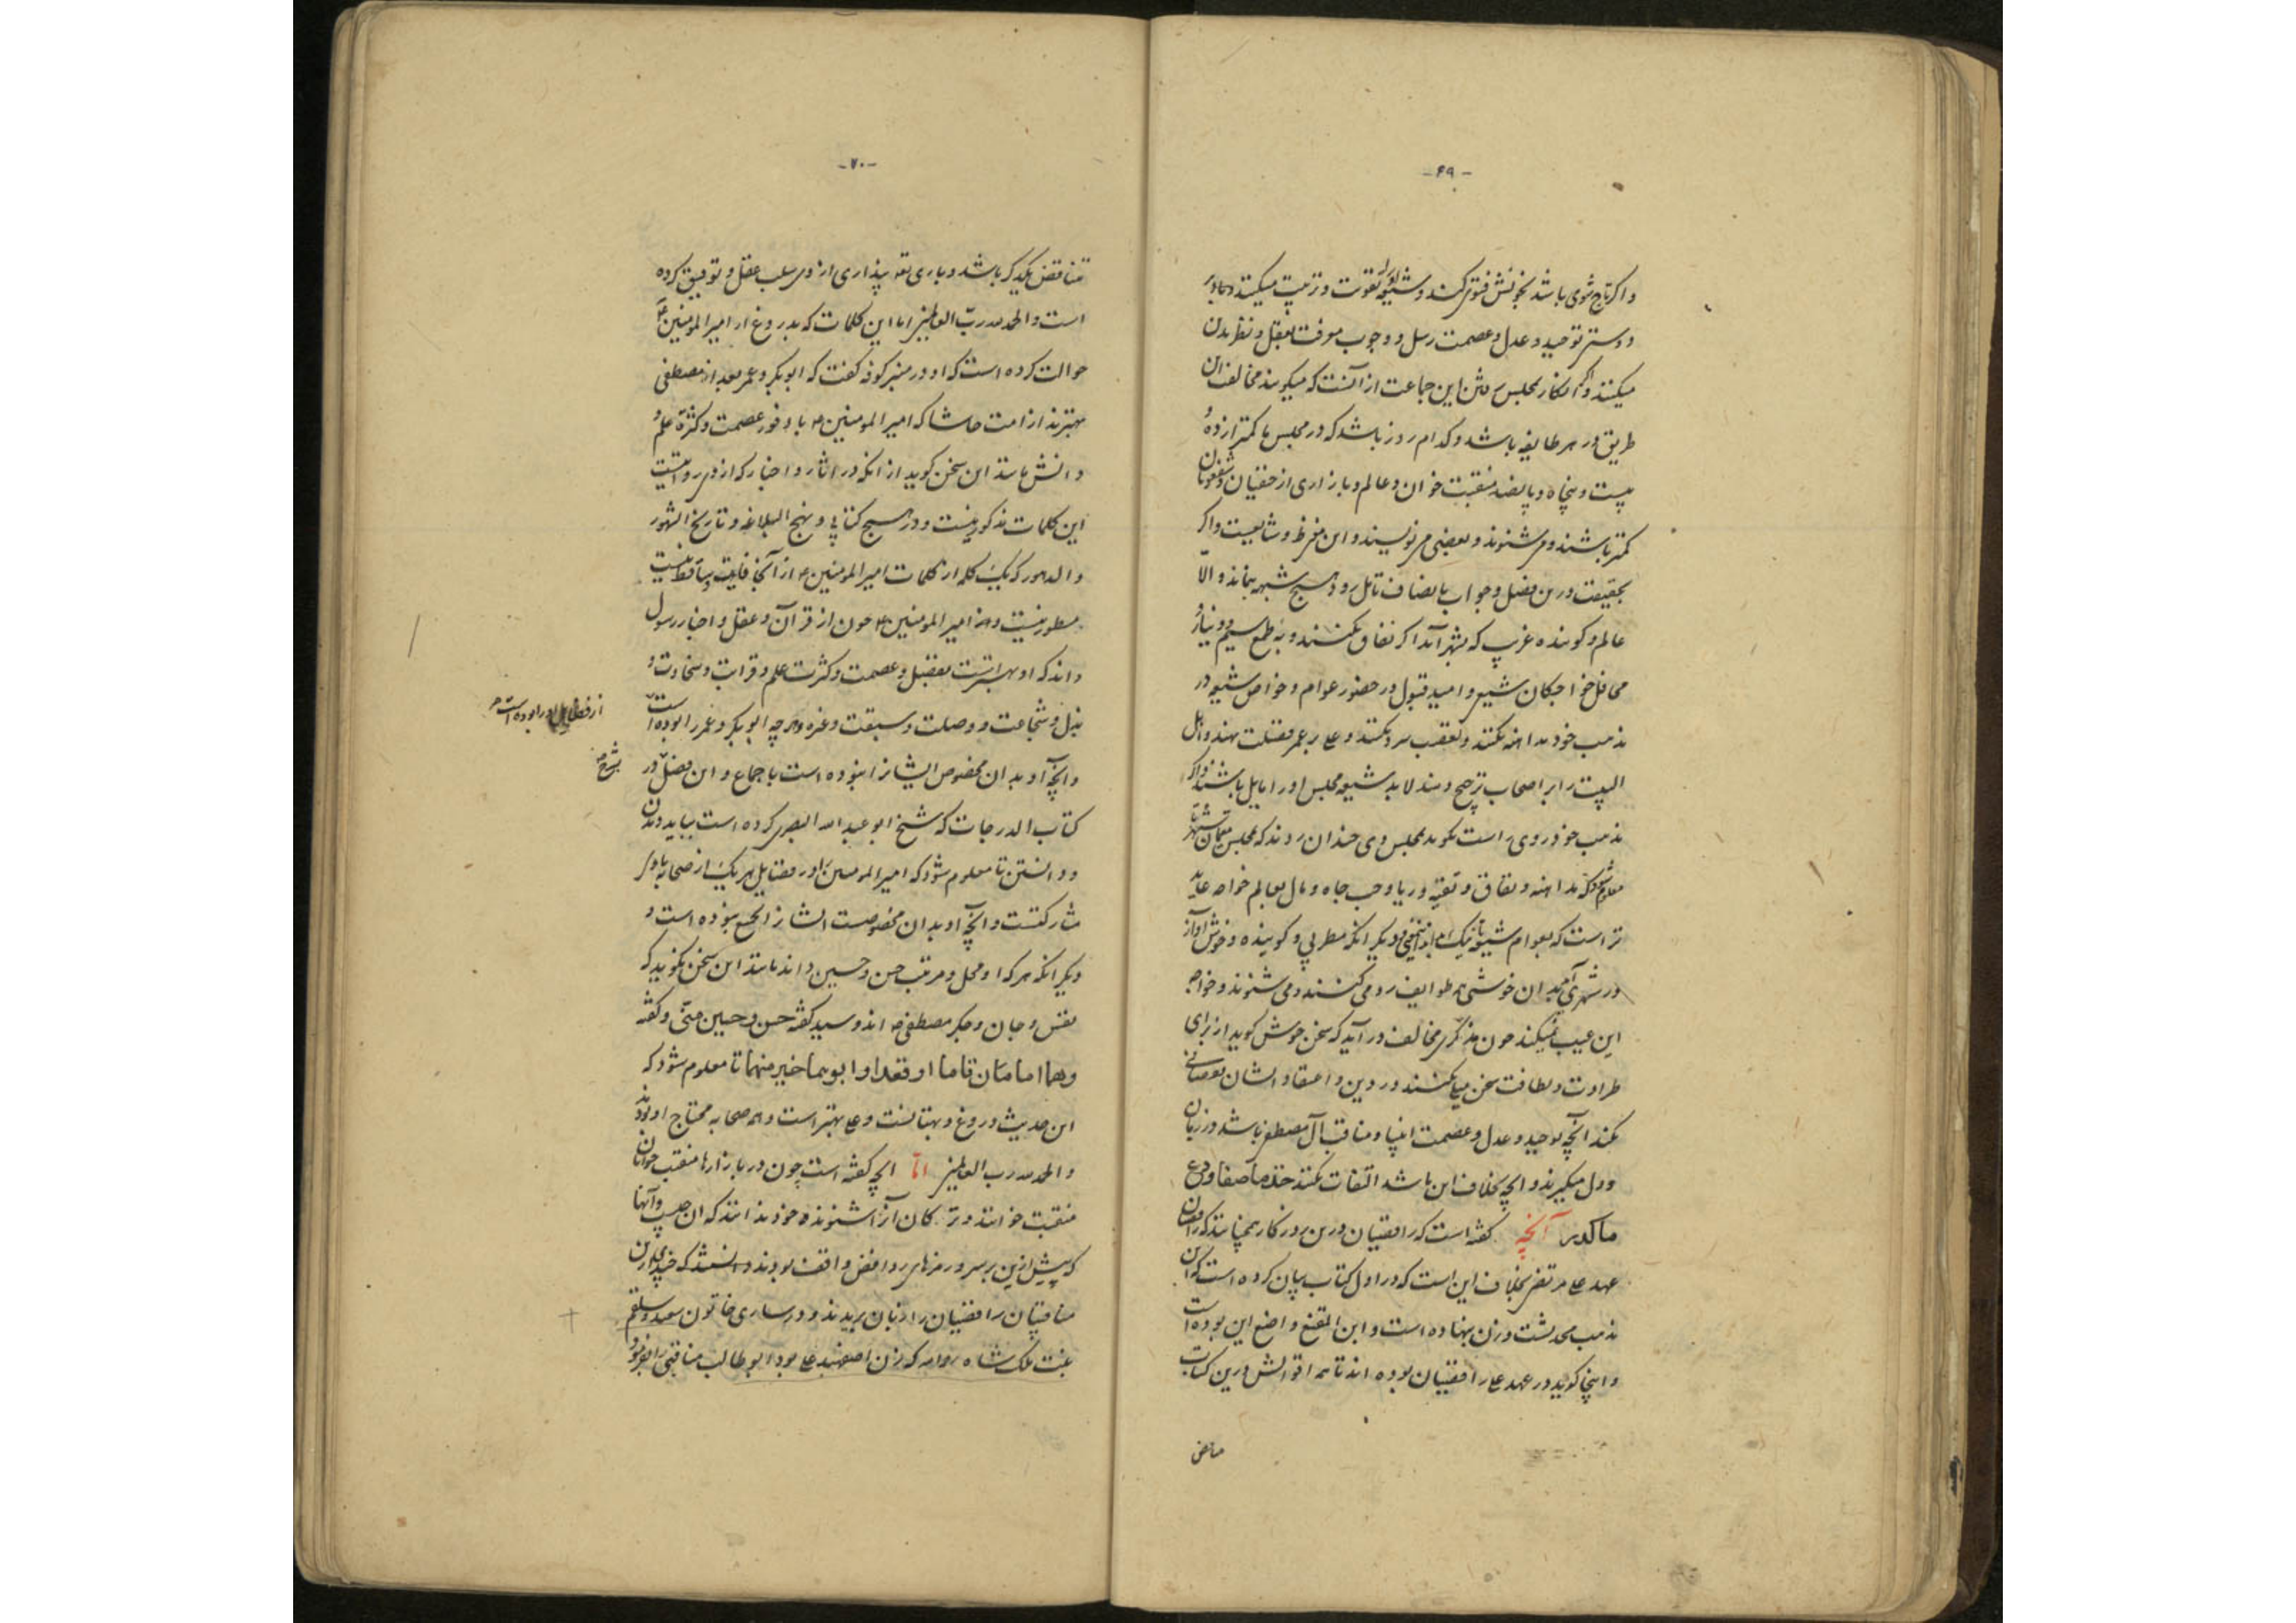 -۶۹-
و اکر تاج شوی باشد بخونش فتوی کنند و شیعه تقوت و تربیت میکنند
و دوستر توحید و عدل و عصمت رسل و وجوب معرفت بعقل و نظر بدن
میکنند و اکر انکار مجلس این جماعت از آنست که میکویند مخالف ان
طریق در هر طایفه باشد و کدام روز باشد که در مجلس ما کمتر از ده و
بیست و پنجاه و پانصد منقبت خوان و عالم و بازاری از حنفیان و شفعویان
کمتر باشند و می شنوند و بعضی می نویسند و این مغز ظ و شایعیست و اکر
بحقیقت درین فصل و جواب بانصاف تامل رود هیچ شبهه نماند و الّا
عالم و کوینده غریب که بشهر آید اکر نفاق نکنند و به طمع سیم و دنیا و
محافل خواجکان شیعی و امید قبول در حضور عوام و خواص شیعه در
مذهب خود مداهنه نکنند و تعصب سرد نکنند و علی بر عمر فضیلت نهند و اهل
البیت را بر اصحاب ترجیح دهند لابد شیعه مجلس او را مایل باشند و اکر
مذهب خود روی راست بکوید بمجلس وی چندان روند که بمجلس مقیمان شهر تا
معلوم شود که مداهنه و نفاق و تقیه و ریا و حب جاه و مال بعالم خواجه عاید
تر است که بعوام شیعه دیکر انکه مطربی و کوینده و خوش آواز
در شهری آید ان خوشی همه طوایف رو می کنند و می شنوند و خواجه
این عیب نمیکند چون مذکّری مخالف در آید که سخن خوش کوید از برای
طراوت و لطافت سخن میل کنند در دین و اعتقاد ایشان نقصانی
نکند آنچه توحید و عدل و عصمت انبیا و مناقب آل مصطفی باشد در زبان
و دل میکیرند و انچه بخلاف این باشد التفات نکنند خذ ما صفا و دع
ما کدر آنچه کفته است که رافضیان درین روزکار همچنانند که رافضیان
عهد علی مرتضی بخلاف این است که در اول کتاب بیان کرده است که این
مذهب محدثست و زن بنهاده است و ابن المقنع واضع این بوده است
و اینجا کوید در عهد علی رافضیان بوده اند تا همه اقوالش درین کتاب
مناقض
-۷۰-
متناقض یکدیکر باشد و باری تعه پنداری از وی سلب عقل و توفیق کرده
است و الحمد لله ربّ العالمین اما این کلمات که بدروغ از امیر المومنین ع
حوالت کرده است که او در منبر کوفه کفت که ابوبکر و عمر بعد از مصطفی
بهترند از امت حاشا که امیر المومنین ع با وفور عصمت و کثرة علم و
دانش مانند این سخن کوید از انکه در آثار و اخبار که از وی روایتست
این کلمات مذکور نیست و در هیچ کتابی و نهج البلاغه و تاریخ الشهور
و الدهور که یک کلمه از کلمات امیر المومنین ع از آنجا فایت و ساقط نیست
مسطور نیست و نه امیر المومنین ع چون از قرآن و عقل و اخبار رسول
داند که او بهتر است بفضل و عصمت و کثرت علم و قرابت و سخاوت و
بذل و شجاعت و وصلت و سبقت و غزه و هر چه ابوبکر و عمر را بوده است
از فضایل او را بوده است
و آنچه او بدان مخصوص ایشانرا نبوده است باجماع و این فصل در
بشرح
کتاب الدرجات که شیخ ابو عبد الله البصری کرده است بباید دیدن
و دانستن تا معلوم شود که امیر المومنین را در فضایل هر یک از صحابه با وی
مشارکتست و آنچه او بدان مخصوصست ایشانرا جمع نبوده است و
دیکر انکه هر که او محل و مرتبت حسن و حسین داند مانند این سخن نکوید که
نفس و جان و جکر مصطفی اند و سید کفته حسن و حسین منّی و کفته
وهما امامان قاما او قعدا و ابوهما خیر منهما تا معلوم شود که
این حدیث دروغ و بهتانست و علی بهتر است و همه صحابه محتاج او بودند
و الحمد لله رب العالمین امّا انچه کفته است چون در بازارها منقبت خوانان
منقبت خوانند و ترکان آنرا شنوند خود ندانند که ان چیست و آنها
که پیش ازین بر سر و رمزهای روافض واقف بودند دانستند که چندین
مناقبیان رافضیان را زبان بریدند و در ساری خاتون سعید سلقم
بنت ملکشاه که زن اصفهبد علی بود ابو طالب مناقبی را بفرمود